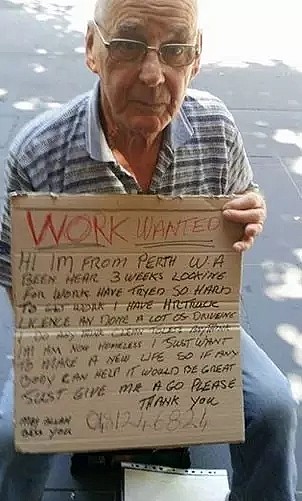 WORK WANTED
HI IM FROM PERTH W.A
BEEN HEAR 3 WEEKS LOOKING
FOR WORK HAVE TRYED SO HARD
TO GET WORK I HAVE HR TRUCK
LICENCE AN DONE A LOT OF DRIVEING
I DO ANY THING CLEAN TOLETS ANYTHING
IM AM NOW HOMELESS I JUST WANT
TO MAKE A NEW LIFE SO IF ANY
BODY CAN HELP IT WOULD BE GREAT
JUST GIVE ME A GO PLEASE
THANK YOU
MAY ALLAH
BESS YOU